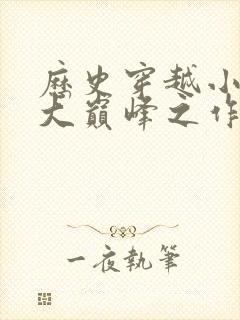 歷史穿越小
大巔峰之作
一夜執筆